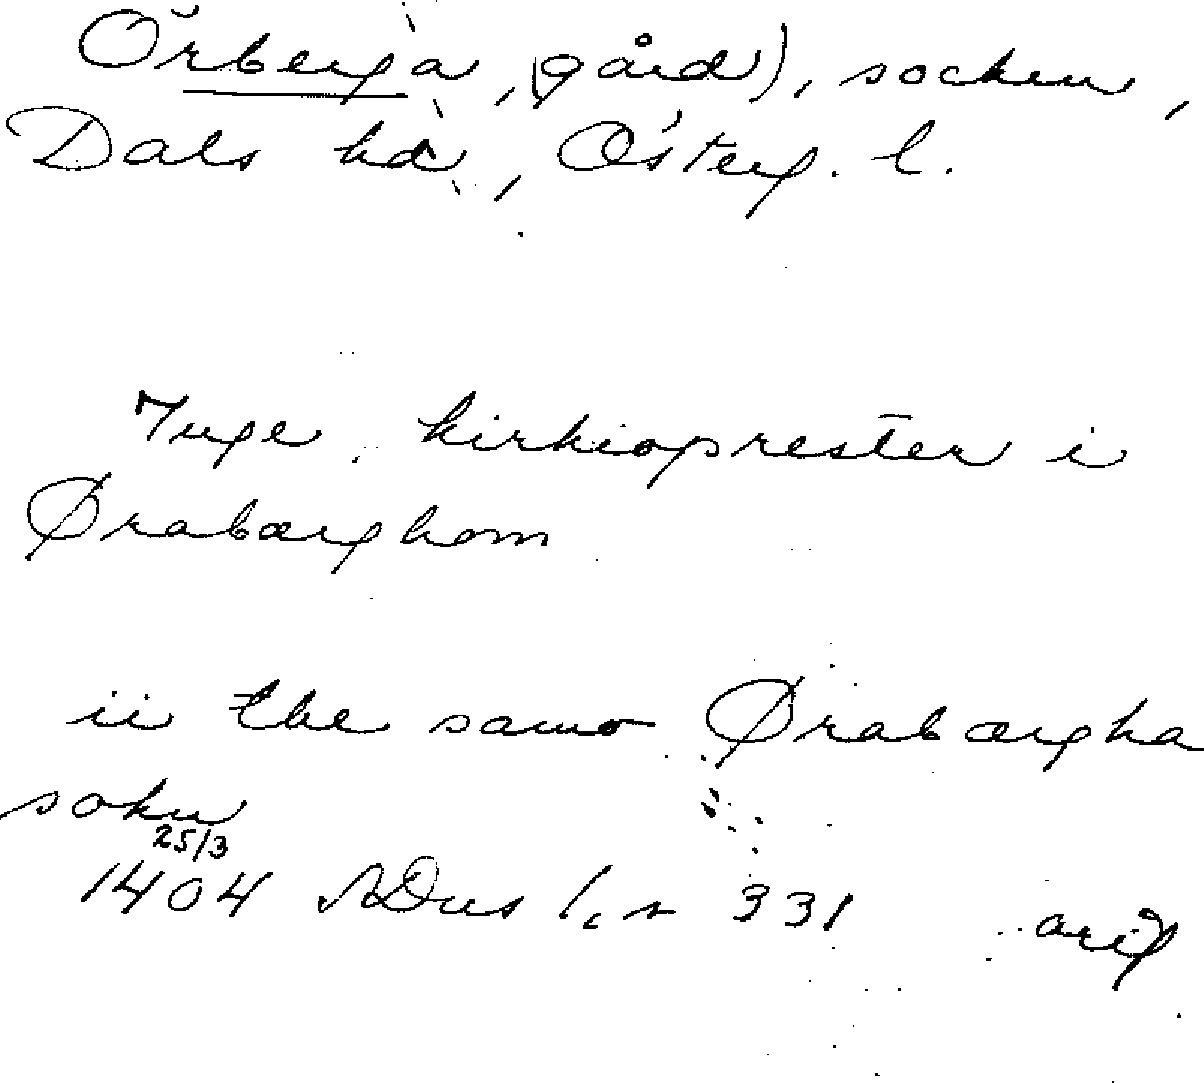 Örberga, (gård), socken,
Dals hd, Österg. l.
Inge kirkioprester i
Ørabærghom
ii the samo Ørabærgha
sokn
25/3
1404 SDns 1, s 331 orig